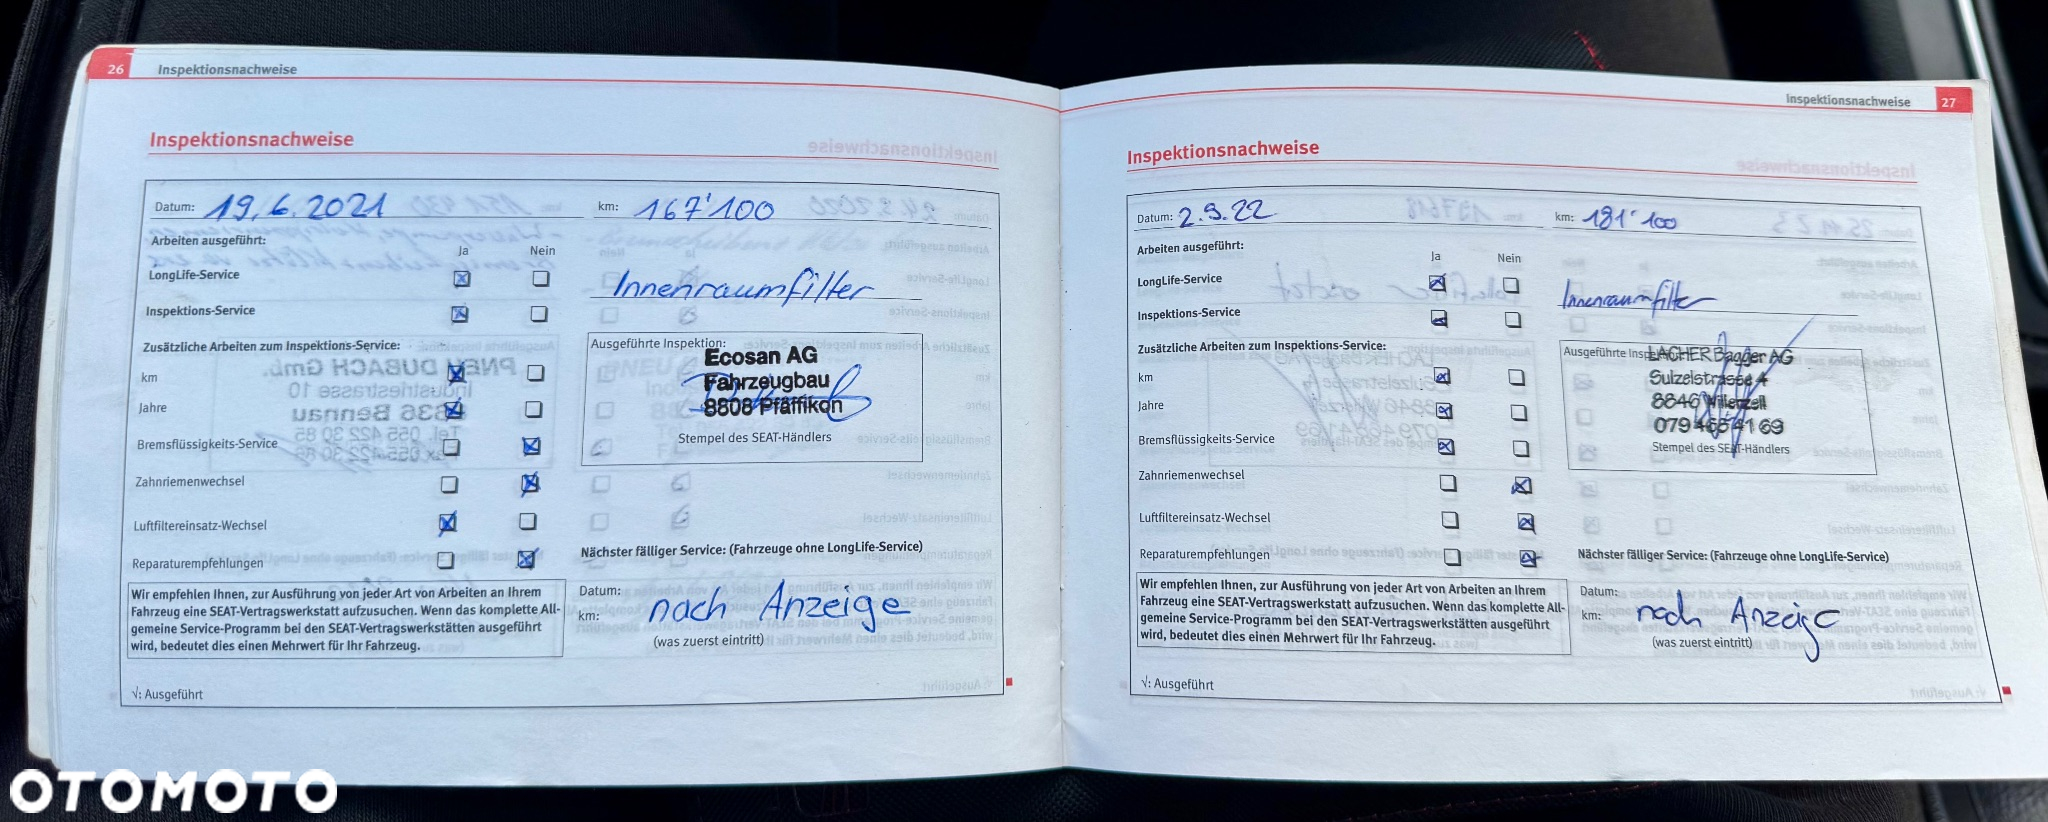 26 Inspektionsnachweise
Inspektionsnachweise
Datum: 19.6.2021 km: 167'100
Arbeiten ausgeführt: Ja Nein
LongLife-Service
Innenraumfilter
Inspektions-Service
Zusätzliche Arbeiten zum Inspektions-Service:
km
Jahre
Bremsflüssigkeits-Service
Zahnriemenwechsel
Luftfiltereinsatz-Wechsel
Reparaturempfehlungen
Ausgeführte Inspektion:
Ecosan AG
Fahrzeugbau
8808 Pfäffikon
Stempel des SEAT-Händlers
Nächster fälliger Service: (Fahrzeuge ohne LongLife-Service)
Datum:
km: nach Anzeige
(was zuerst eintritt)
Wir empfehlen Ihnen, zur Ausführung von jeder Art von Arbeiten an Ihrem
Fahrzeug eine SEAT-Vertragswerkstatt aufzusuchen. Wenn das komplette All-
gemeine Service-Programm bei den SEAT-Vertragswerkstätten ausgeführt
wird, bedeutet dies einen Mehrwert für Ihr Fahrzeug.
√: Ausgeführt
Inspektionsnachweise 27
Inspektionsnachweise
Datum: 2.9.22 km: 181'100
Arbeiten ausgeführt: Ja Nein
LongLife-Service
Innenraumfilter
Inspektions-Service
Zusätzliche Arbeiten zum Inspektions-Service:
km
Jahre
Bremsflüssigkeits-Service
Zahnriemenwechsel
Luftfiltereinsatz-Wechsel
Reparaturempfehlungen
Ausgeführte
LACHER Bagger AG
Sulzelstrasse 4
8846 Willerzell
079 465 41 69
Stempel des SEAT-Händlers
Nächster fälliger Service: (Fahrzeuge ohne LongLife-Service)
Datum:
km: nach Anzeige
(was zuerst eintritt)
Wir empfehlen Ihnen, zur Ausführung von jeder Art von Arbeiten an Ihrem
Fahrzeug eine SEAT-Vertragswerkstatt aufzusuchen. Wenn das komplette All-
gemeine Service-Programm bei den SEAT-Vertragswerkstätten ausgeführt
wird, bedeutet dies einen Mehrwert für Ihr Fahrzeug.
√: Ausgeführt
OTOMOTO